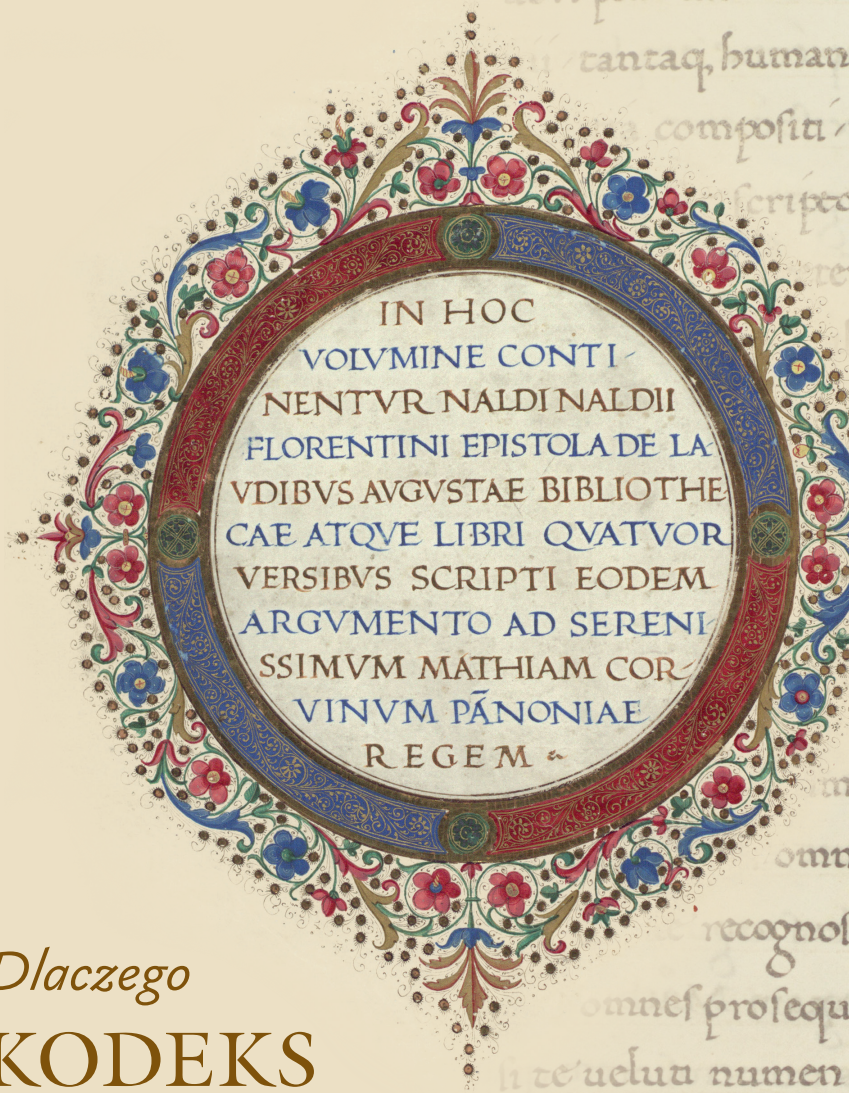 tantaq, human
compositi
scripto
IN HOC
VOLVMINE CONTI-
NENTVR NALDI NALDII
FLORENTINI EPISTOLA DE LA-
VDIBVS AVGVSTAE BIBLIOTHE-
CAE ATQVE LIBRI QVATVOR
VERSIBVS SCRIPTI EODEM
ARGVMENTO AD SERENI-
SSIMVM MATHIAM COR-
VINVM PÃNONIAE
REGEM
omn
recognos
Dlaczego
omnes prosequ
KODEKS
te ueluti numen